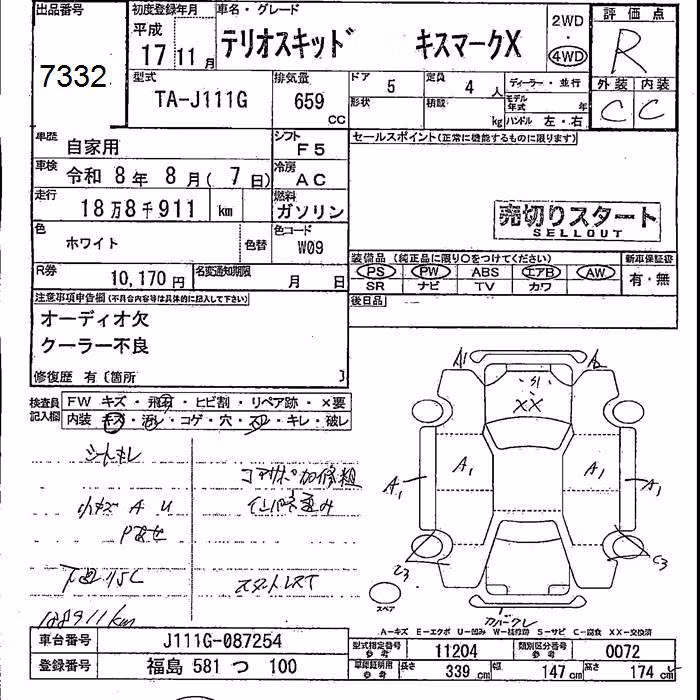 出品番号
7332
初度登録年月
平成
17 11月
車名・グレード
テリオスキッド キスマークX
2WD
・
4WD
評価点
R
外装 内装
C C
型式
TA-J111G
排気量
659
CC
ドア
5
定員
4 人
ディーラー・並行
形状
積載
kg
モデル年式 年
ハンドル 左・右
車歴
自家用
シフト
F5
セールスポイント(正常に機能するものに限ります)
車検
令和 8年 8月( 7日)
冷房
AC
走行
18万8千911 km
燃料
ガソリン
売切りスタート
SELLOUT
色
ホワイト
色替
色コード
W09
R券
10,170円
名変通知期限
月 日
装備品(純正品に限り○をつけてください)
PS PW ABS エアB AW
SR ナビ TV カワ
新車保証書
有・無
後日品
注意事項申告欄(不具合内容等は具体的に記入して下さい)
オーディオ欠
クーラー不良
修復歴 有〔箇所 〕
検査員記入欄
FW キズ・飛石・ヒビ割・リペア跡・×要
内装 キズ・汚レ・コゲ・穴・スレ・キレ・破レ
シートキレ
コアサポ加修粗
小キズ A U
Pあせ
下廻りSC
スタットレスT
188911km
A1 A2
S1
XX
A1 A1 A1 A1
C3 C3
スペア
カバークレ
A-キズ E-エクボ U-凹み W-補修跡 S-サビ C-腐食 XX-交換済
車台番号
J111G-087254
登録番号
福島 581 つ 100
型式指定番号
参考
11204
類別区分番号
参考
0072
車庫証明用
参考
長さ 339 cm 幅 147 cm 高さ 174 cm